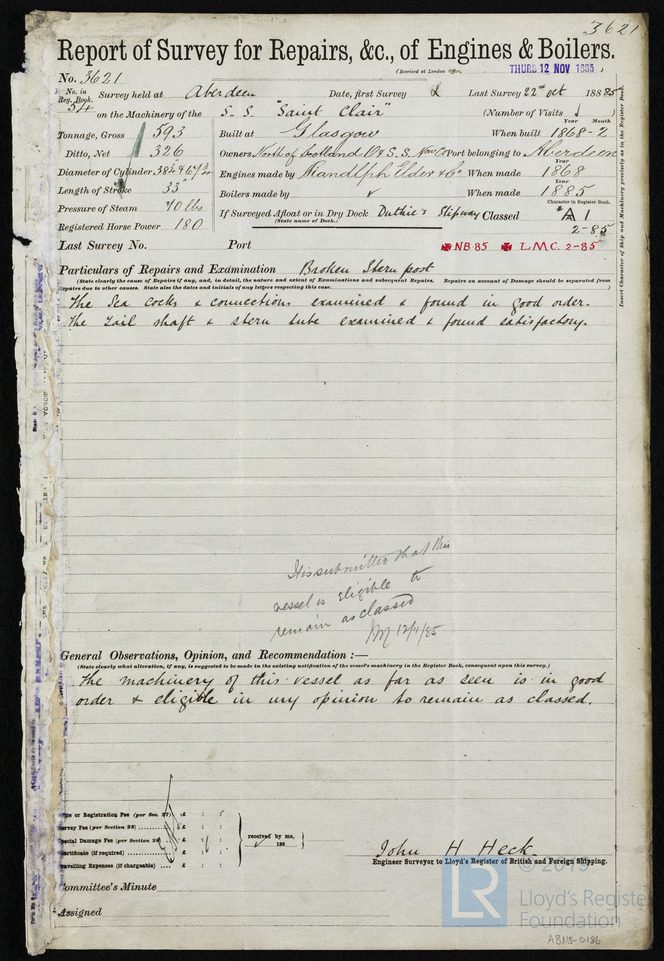 3621
Report of Survey for Repairs, &c., of Engines & Boilers.
(Received at London Office, THURS 12 NOV 1885 )
No. 3621
No. in Reg. Book. Survey held at Aberdeen Date, first Survey & Last Survey 22nd oct 188885
54 on the Machinery of the S. S. "Saint Clair" (Number of Visits )
Tonnage, Gross 593 Built at Glasgow When built 1868-2
Year Month
Ditto, Net 326 Owners North of Scotland O & S. S. Nav Co Port belonging to Aberdeen
Diameter of Cylinder Engines made by Randolph Elder & Co When made 1868
Year
Length of Stroke 33" Boilers made by When made 1885
Year
Pressure of Steam 70 lbs If Surveyed Afloat or in Dry Dock Duthie's Slipway Classed A1
(State name of Dock.)
Character in Register Book.
2-85
Registered Horse Power 180
Last Survey No. Port NB 85 L.M.C. 2-85
Insert Character of Ship and Machinery precisely as in the Register Book.
Particulars of Repairs and Examination Broken Stern post
(State clearly the cause of Repairs if any, and, in detail, the nature and extent of Examinations and subsequent Repairs. Repairs on account of Damage should be separated from
repairs due to other causes. State also the dates and initials of any letters respecting this case. )
The Sea cocks & connections examined & found in good order.
The Tail shaft & stern tube examined & found satisfactory.
It is submitted that this
vessel is eligible to
remain as classed
12/11/85
General Observations, Opinion, and Recommendation :—
(State clearly what alteration, if any, is suggested to be made in the existing notification of the vessel's machinery in the Register Book, consequent upon this survey.)
The machinery of this vessel as far as seen is in good
order & eligible in my opinion to remain as classed.
or Registration Fee (per Sec. 27) £ : :
Survey Fee (per Section 28) £ : :
Special Damage Fee (per Section 28) £ : :
Certificate (if required) £ : :
Travelling Expenses (if chargeable) £ : :
received by me,
188
John H Heck
Engineer Surveyor to Lloyd's Register of British and Foreign Shipping.
Committee's Minute
Assigned
LR
© 2019
Lloyd's Register
Foundation
ABN8-0186